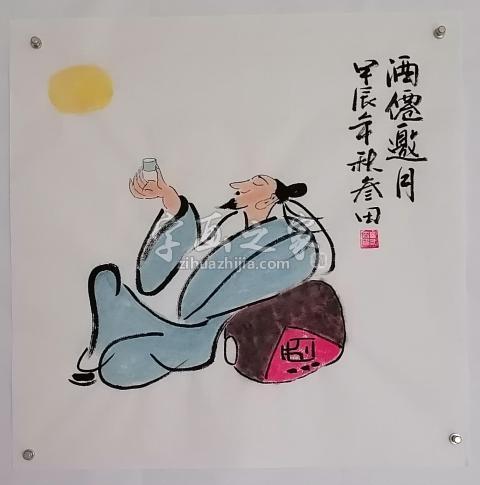 酒僊邀月
甲辰年秋参田
字画之家
zihuazhijia.com